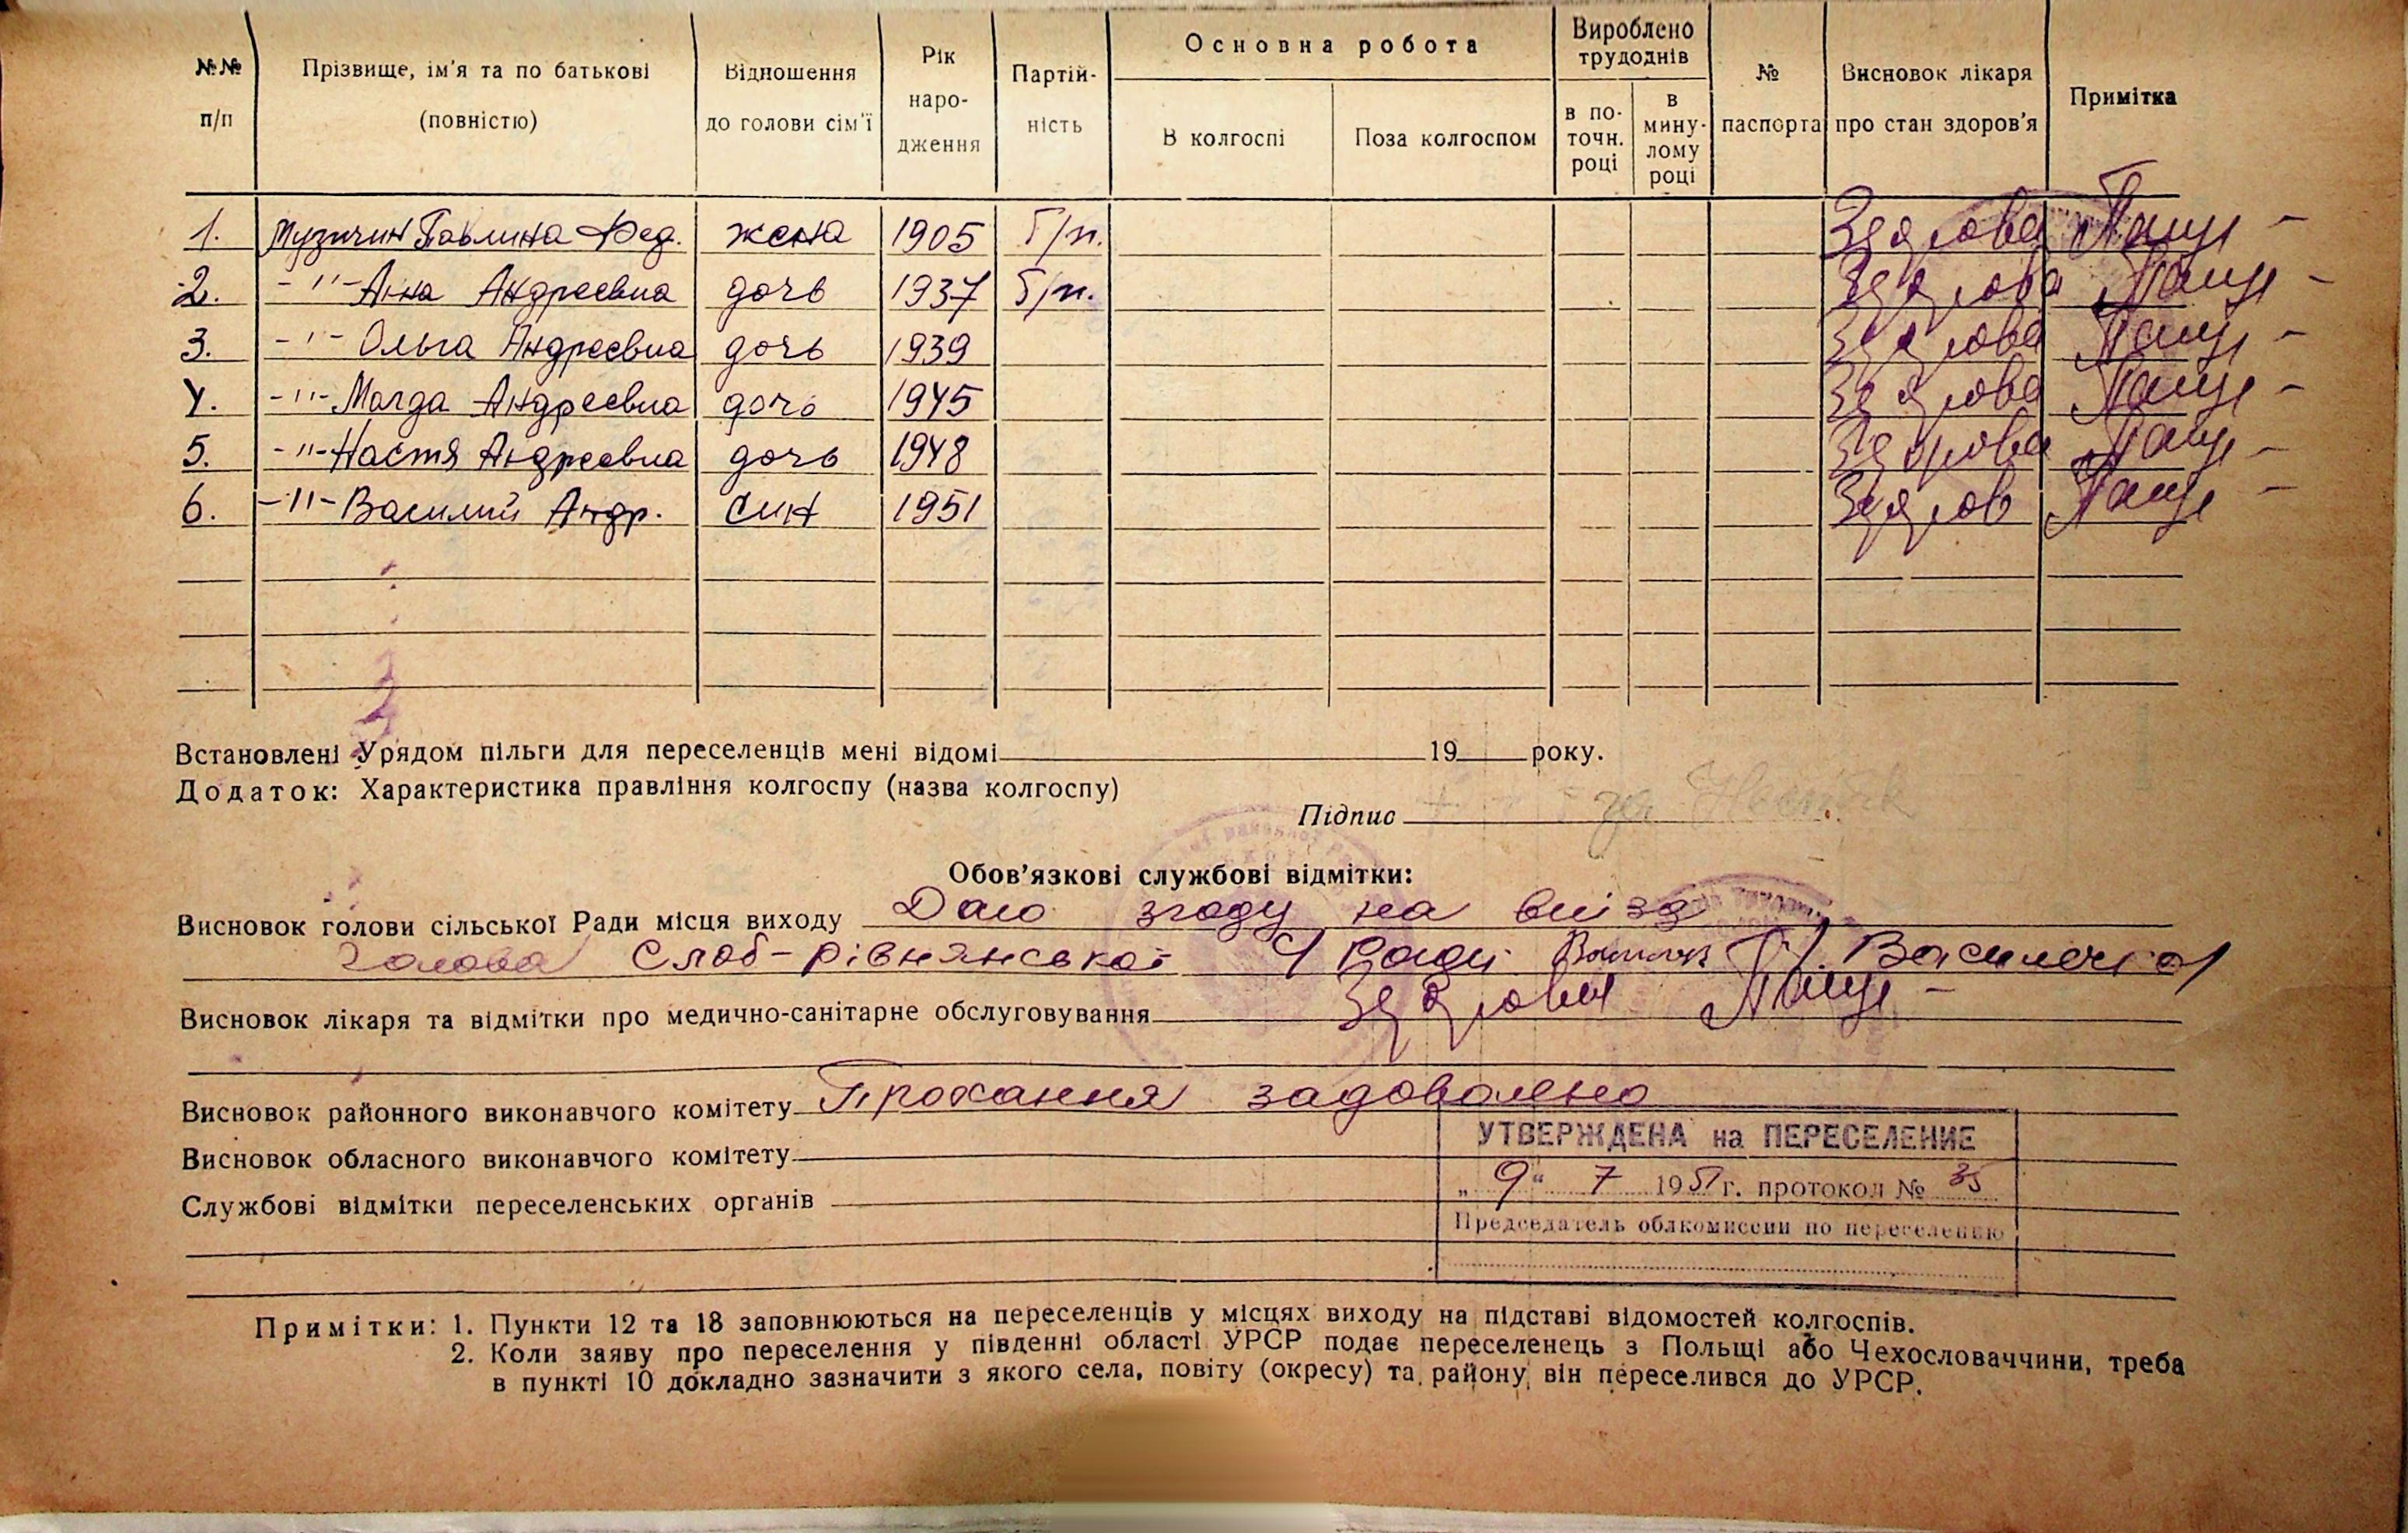 №№ п/п | Прізвище, ім'я та по батькові (повністю) | Відношення до голови сім'ї | Рік народження | Партій-ність | Основна робота | Вироблено трудоднів | № паспорта | Висновок лікаря про стан здоров'я | Примітка
В колгоспі | Поза колгоспом | в по-точн. році | в мину-лому році
1. Музичин Павлина Фед. жена 1905 б/п. Здорова
2. -"- Анна Андреевна дочь 1937 б/п. Здорова
3. -"- Ольга Андреевна дочь 1939 Здорова
4. -"- Магда Андреевна дочь 1945 Здорова
5. -"- Настя Андреевна дочь 1948 Здорова
6. -"- Василий Андр. син 1951 Здоров
Встановлені Урядом пільги для переселенців мені відомі 19 року.
Додаток: Характеристика правління колгоспу (назва колгоспу)
Підпис
Обов'язкові службові відмітки:
Висновок голови сільської Ради місця виходу Даю згоду на виїзд
Голова Слоб-рівнянської с/Ради Василечко
Висновок лікаря та відмітки про медично-санітарне обслуговування Здорові
Висновок районного виконавчого комітету Прохання задоволено
УТВЕРЖДЕНА на ПЕРЕСЕЛЕНИЕ
Висновок обласного виконавчого комітету
„9“ 7 1951 г. протокол № 35
Службові відмітки переселенських органів
Председатель облкомиссии по переселению
Примітки: 1. Пункти 12 та 18 заповнюються на переселенців у місцях виходу на підставі відомостей колгоспів.
2. Коли заяву про переселення у південні області УРСР подає переселенець з Польщі або Чехословаччини, треба
в пункті 10 докладно зазначити з якого села, повіту (окресу) та району він переселився до УРСР.